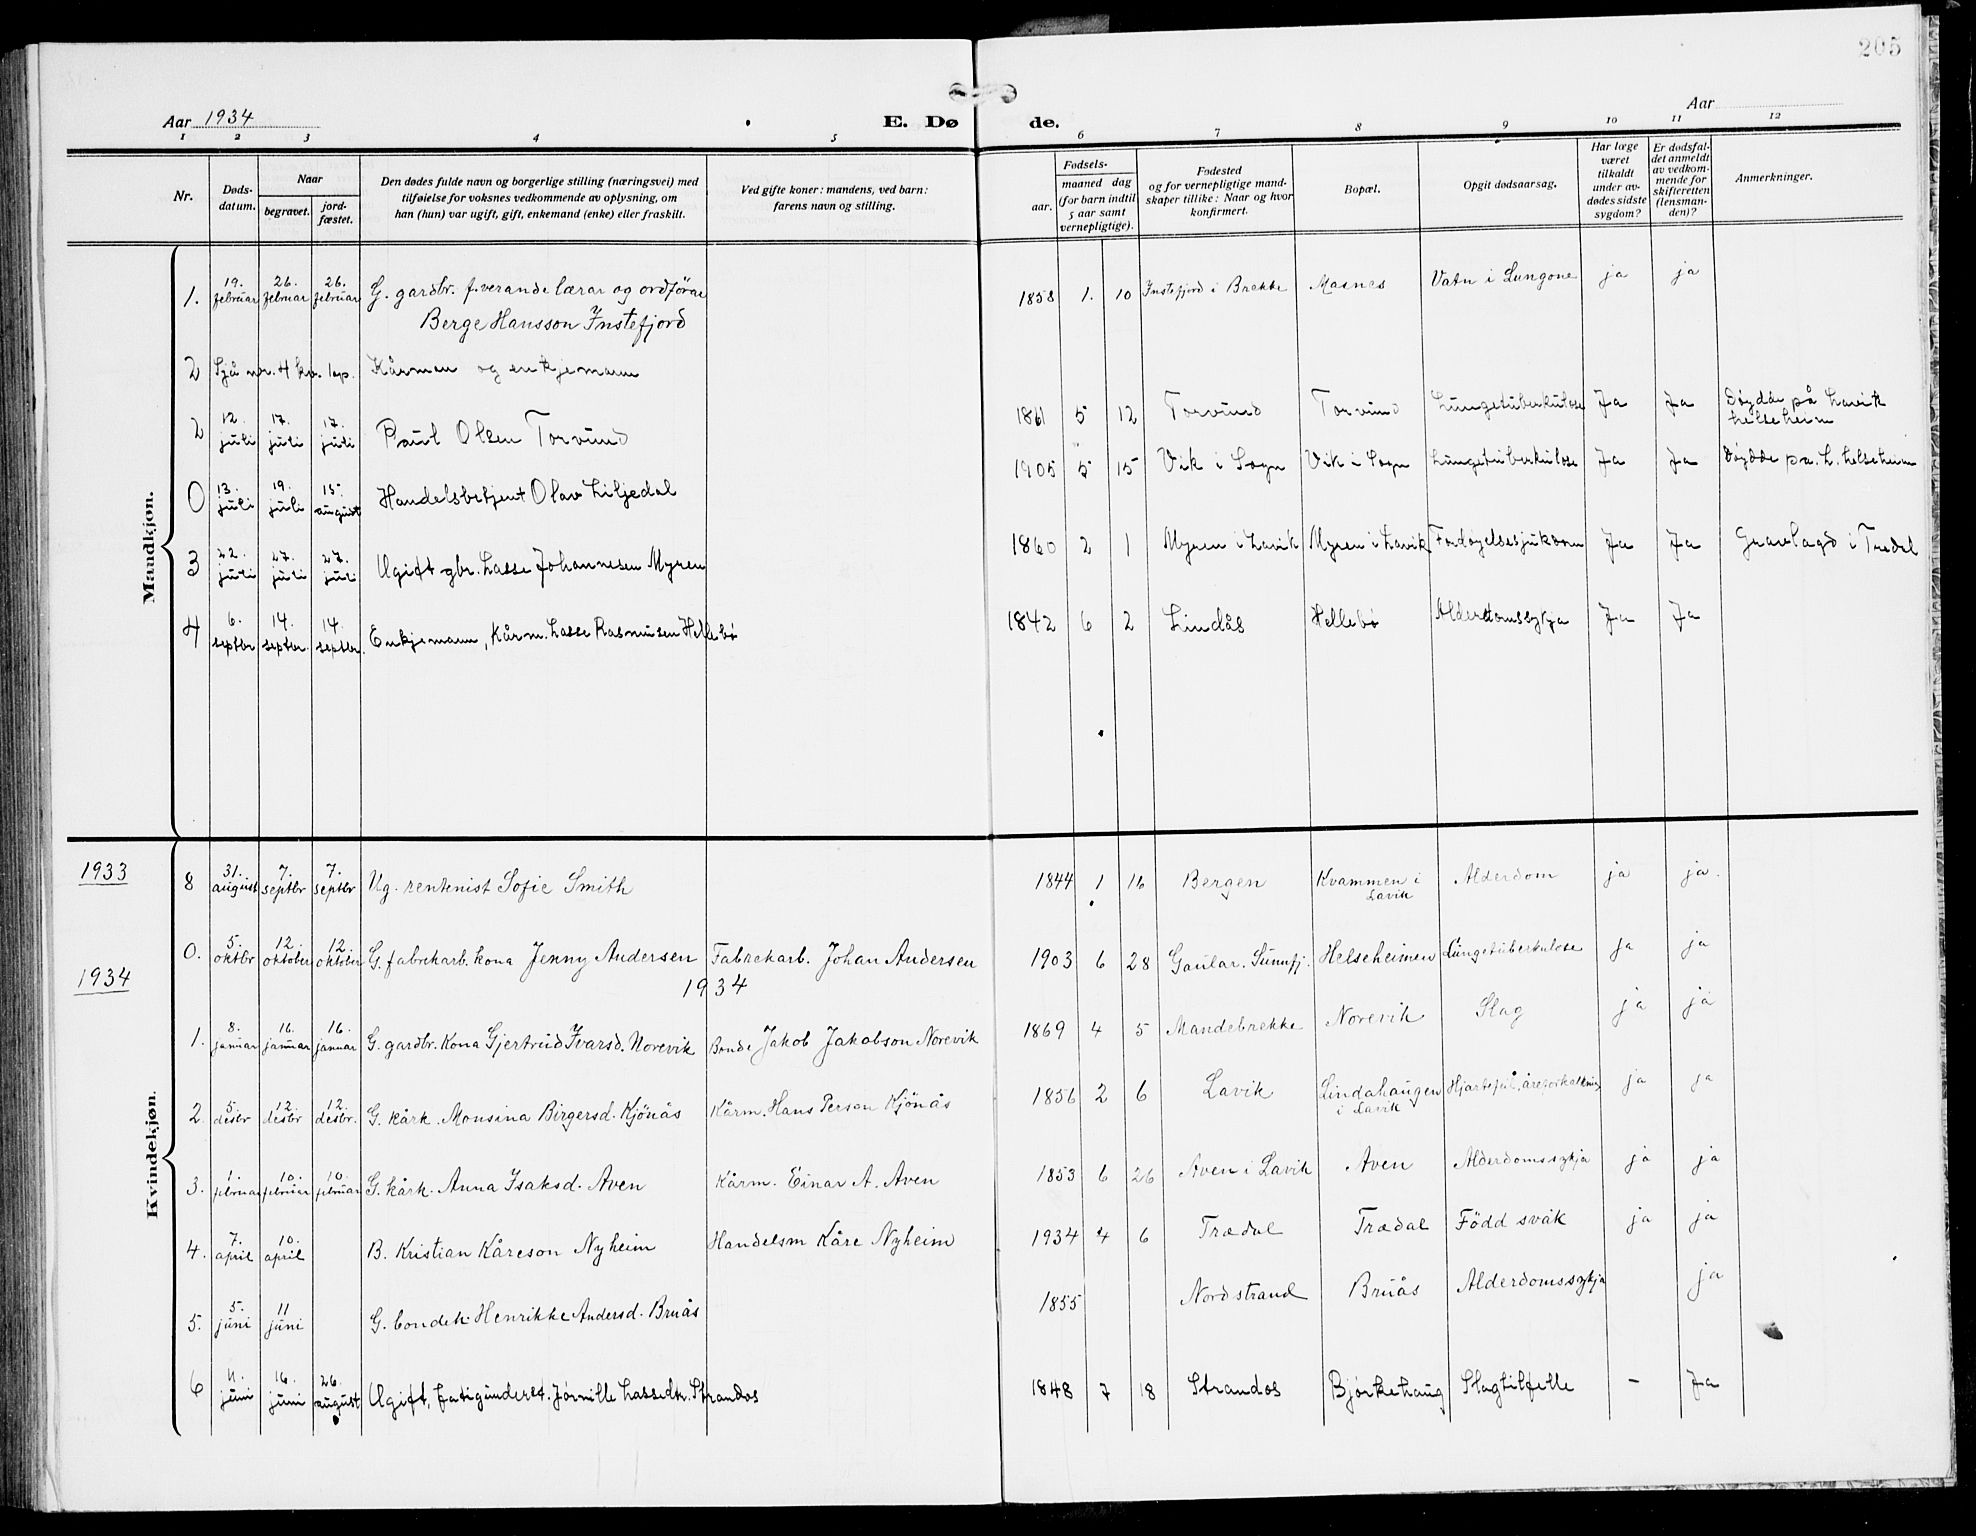 205
Aar 1934
E. Døde.
Aar
1 2 3 4 5 6 7 8 9 10 11 12
Nr.
Døds-
datum.
Naar
begravet.
jord-
fæstet.
Den dødes fulde navn og borgerlige stilling (næringsvei) med
tilføielse for voksnes vedkommende av oplysning, om
han (hun) var ugift, gift, enkemand (enke) eller fraskilt.
Ved gifte koner: mandens, ved barn:
farens navn og stilling.
Fødsels-
aar.
maaned dag
(for barn indtil
5 aar samt
vernepligtige).
Fødested
og for vernepligtige mand-
skaper tillike: Naar og hvor
konfirmert.
Bopæl.
Opgit dødsaarsag.
Har læge
været
tilkaldt
under av-
dødes sidste
sygdom?
Er dødsfal-
det anmeldt
av vedkom-
mende for
skifteretten
(lensman-
den)?
Anmerkninger.
Mandkjøn.
1. 19. februar 26. februar 26. februar G. gardbr. f. verande lærar og ordförar 1858 1. 10 Instefjord i Brekke Masnes Vatn i Lungone ja ja
Berge Hansson Instefjord
2 Sjå nr. 4 kv. 1ap. Kårman og enkjemann
2 12. juli 17. juli 17. juli Paul Olsen Torvund 1861 5 12 Torvund Torvund Lungetuberkulose Ja Ja Døydde på Lavik helseheim
0 13. juli 19. juli 15. august Handelsbetjent Olav Liljedal 1905 5 15 Vik i Sogn Vik i Sogn Lungetuberkulose Ja Ja Døydde på L. helseheim
3 22. juli 27. juli 27. juli Ugift gbr. Lasse Johannesen Myren 1860 2 1 Myren i Lavik Myren i Lavik Fordøyelsessjukdom Ja Ja Gravlagd i Tredal
4 6. septbr 14. septbr. 14. septbr. Enkjemann, Kårm. Lasse Rasmusen Hellebø 1842 6 2 Lindås Hellebø Alderdomssykja Ja Ja
Kvindekjøn.
1933
8 31. august 7. septbr 7. septbr Ug. rentenist Sofie Smith 1844 1 16 Bergen Kvammen i Lavik Alderdom ja ja.
0. 5. oktbr 12. oktober 12. oktober G. fabrekarb. kona Jenny Andersen Fabrekarb. Johan Andersen 1903 6 28 Gaular. Sunnfj. Helseheimen Lungetuberkulose ja ja
1934
1934
1. 8. januar 16. januar 16. januar G. gardbr. Kona Gjertrud Ivarsd. Norevik Bonde Jakob Jakobson Norevik 1869 4 5 Mandebrekke Norevik Slag ja ja
2. 5. desbr 12. desbr 12. desbr. G. kårk. Monsina Birgersd. Kjönås Kårm. Hans Person Kjönås 1856 2 6 Lavik Lindahaugen i Lavik Hjartefeil, åreforkalkning ja ja
3. 1. februar 10. februar 10. februar G. kårk. Anna Isaksd. Aven Kårm. Einar A. Aven 1853 6 26 Aven i Lavik Aven Alderdomssykja ja ja
4. 7. april 10. april B. Kristian Kåreson Nyheim Handelsm Kåre Nyheim 1934 4 6 Trædal Trædal Född svåk ja ja
5. 5. juni 11 juni G. bondek. Henrikke Andersd. Bruås 1855 Nordstrand Bruås Alderdomssykja ja
6 11. juni 16. juni 26. august Ugift, fatigunderst. Jørnille Lassedtr. Strandos 1848 7 18 Strandos Bjørkehaug Slagtilfelle - Ja